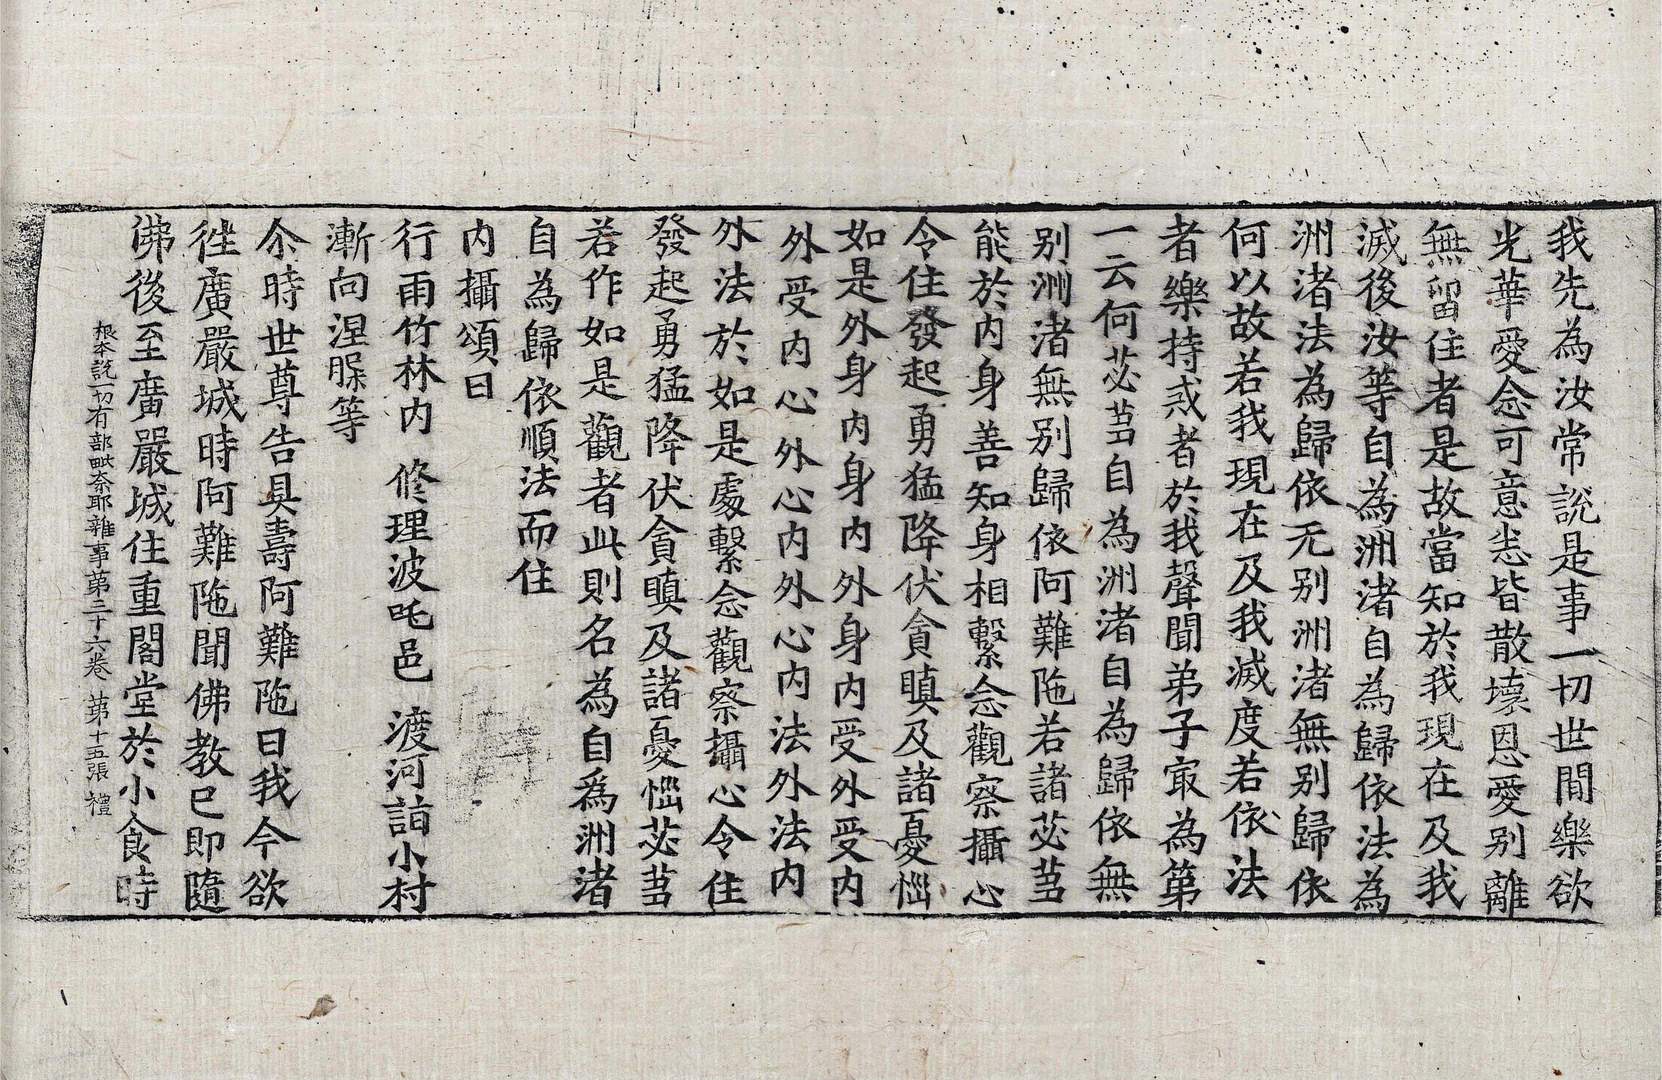 我先為汝常說是事一切世間樂欲
光華愛念可意恙皆散壞恩愛別離
無留住者是故當知於我現在及我
滅後汝等自為洲渚自為歸依法為
洲渚法為歸依无別洲渚無別歸依
何以故若我現在及我滅度若依法
者樂持戒者於我聲聞弟子㝡為第
一云何苾芻自為洲渚自為歸依無
別洲渚無別歸依阿難陁若諸苾芻
能於內身善知身相繫念觀察攝心
令住發起勇猛降伏貪瞋及諸憂惱
如是外身內身內外身內受外受內
外受內心外心內外心內法外法內
外法於如是處繫念觀察攝心令住
發起勇猛降伏貪瞋及諸憂惱苾芻
若作如是觀者此則名為自爲洲渚
自為歸依順法而住
內攝頌曰
行雨竹林內 修理波吒邑 渡河詣小村
漸向涅槃等
尒時世尊告具壽阿難陁曰我今欲
徃廣嚴城時阿難陁聞佛教已即隨
佛後至廣嚴城住重閣堂於小食時
根本說一切有部毗奈耶雜事第三十六卷 第十五張 禮